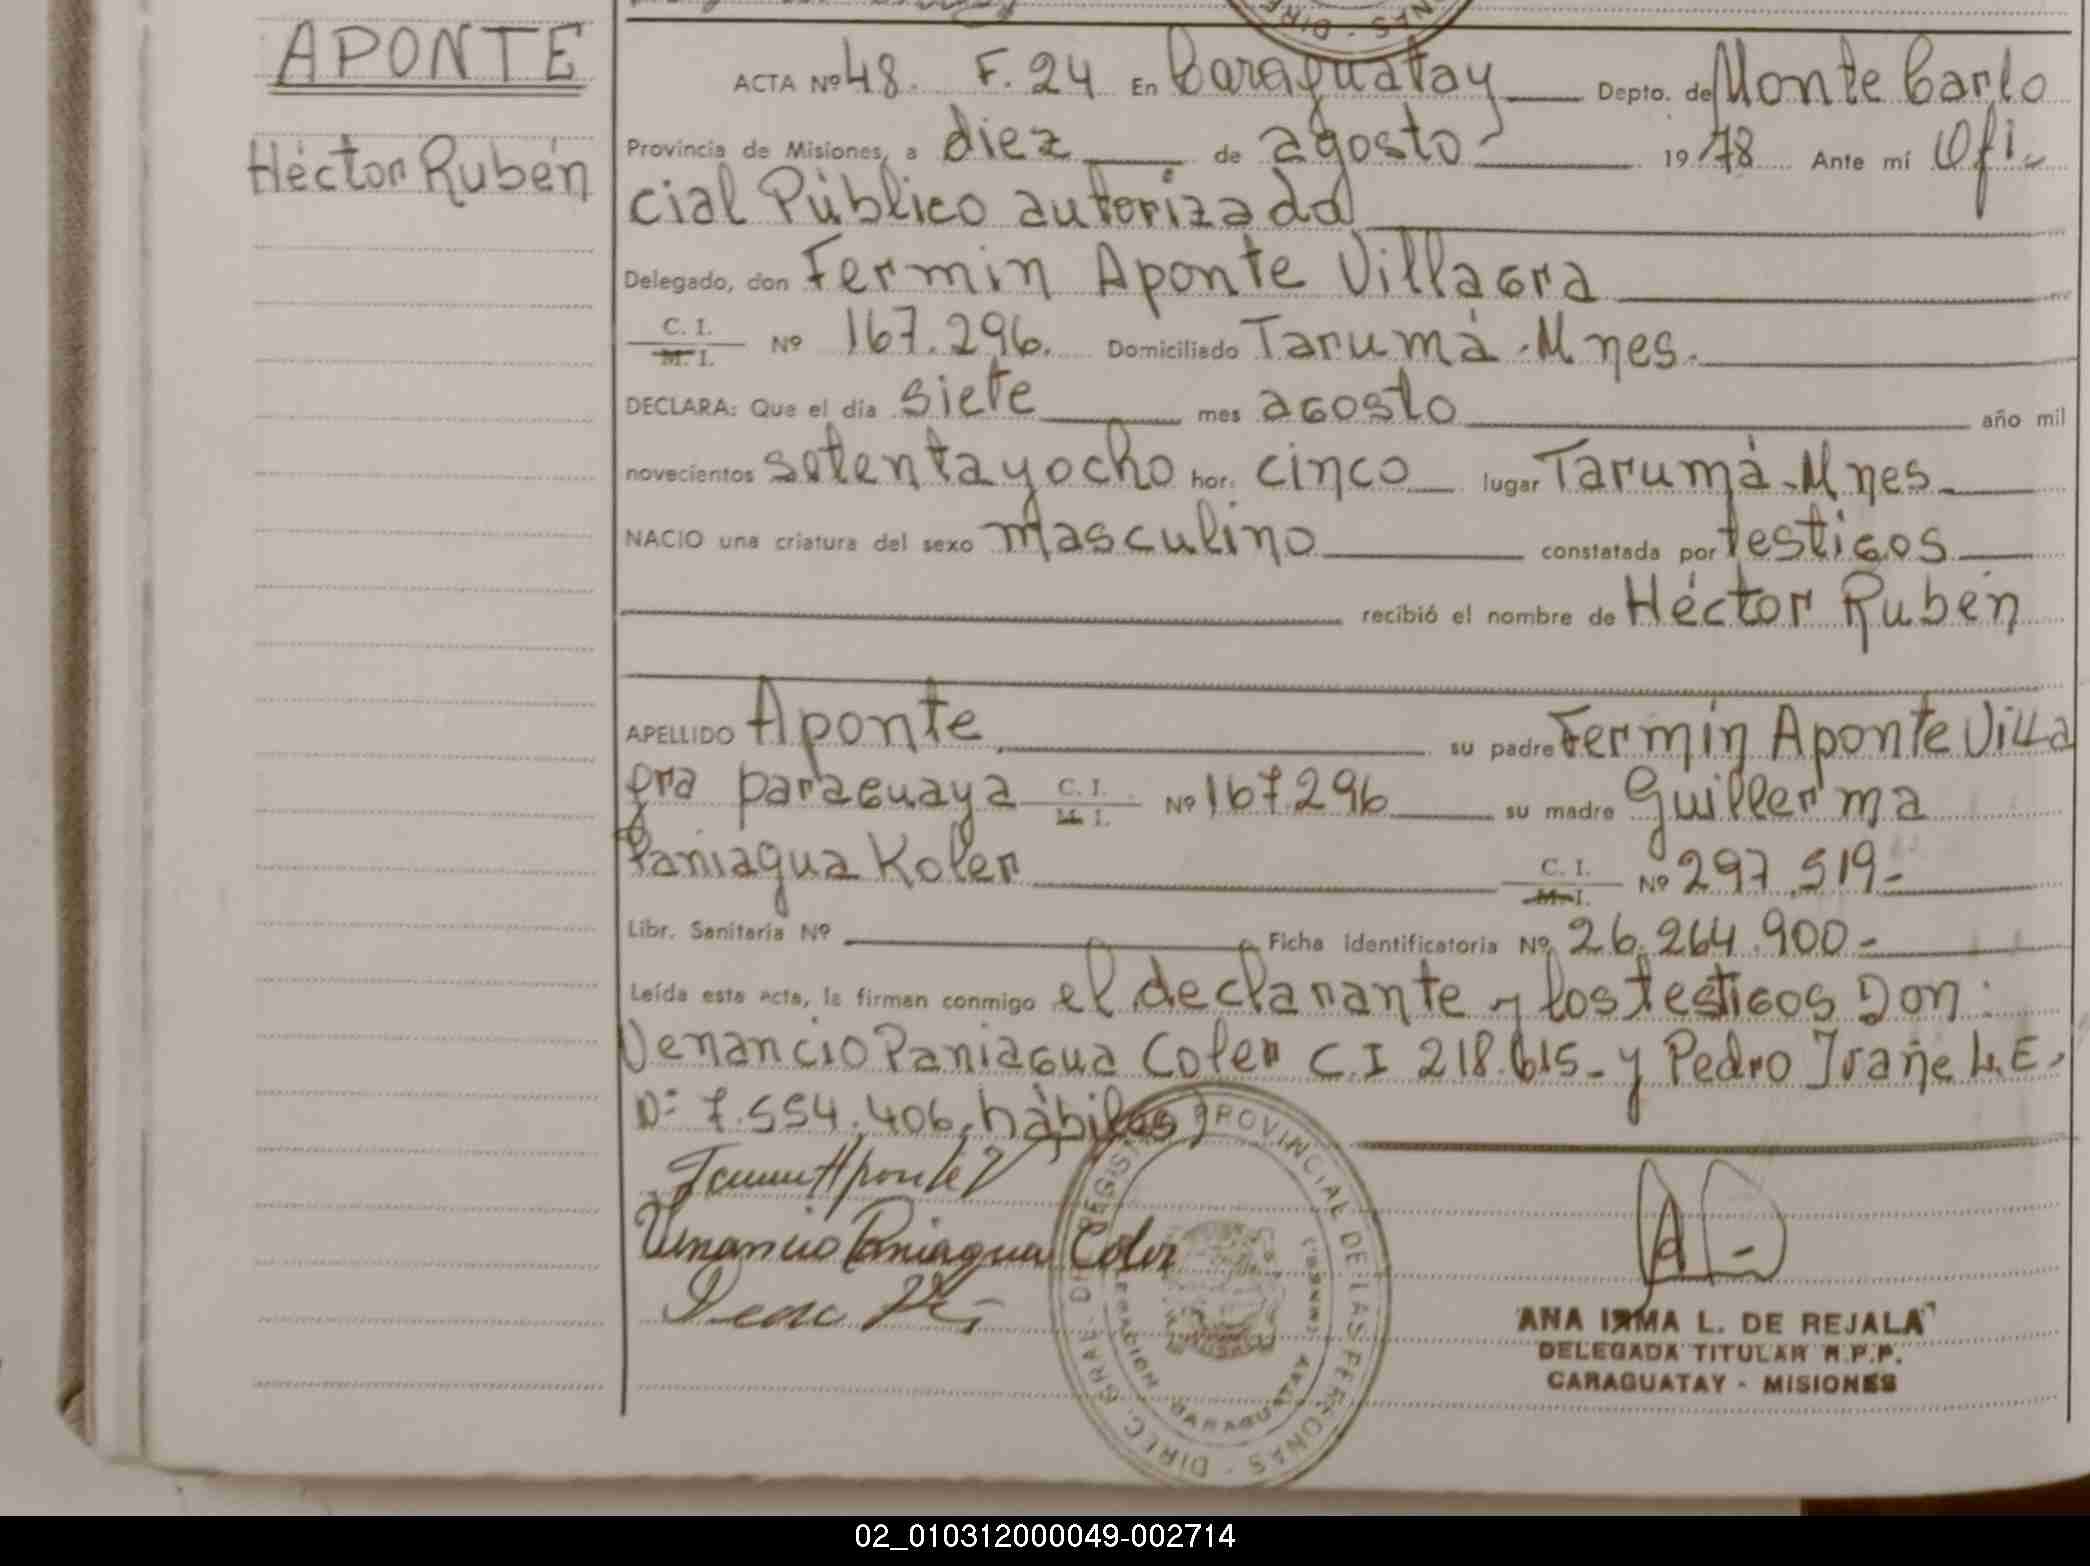 APONTE
Héctor Rubén
ACTA Nº 48. F. 24 En Caraguatay Depto. de Monte Carlo
Provincia de Misiones, a diez de agosto 1978 Ante mí Ofi-
cial Público autorizada
Delegado, don Fermin Aponte Villagra
C. I. M. I. Nº 167.296. Domiciliado Tarumá - Mnes.
DECLARA: Que el día siete mes agosto año mil
novecientos setenta y ocho hor. cinco lugar Tarumá - Mnes
NACIO una criatura del sexo masculino constatada por testigos
recibió el nombre de Héctor Rubén
APELLIDO Aponte su padre Fermín Aponte Villa
gra paraguaya C. I. M. I. Nº 167.296 su madre Guillerma
Paniagua Koler C. I. M. I. Nº 297.519-
Libr. Sanitaria Nº Ficha identificatoria Nº 26.264.900-
Leída esta acta, la firman conmigo el declarante y los testigos Don:
Venancio Paniagua Coler C.I 218.615- y Pedro L.E.
Nº 7.554.406, hábiles)
Aponte V
Venancio Paniagua Coler
DIREC. GRAL. DE REGISTRO PROVINCIAL DE LAS PERSONAS
DELEGACION CARAGUATAY (MNES)
ANA IRMA L. DE REJALA
DELEGADA TITULAR R.P.P.
CARAGUATAY - MISIONES
02_010312000049-002714